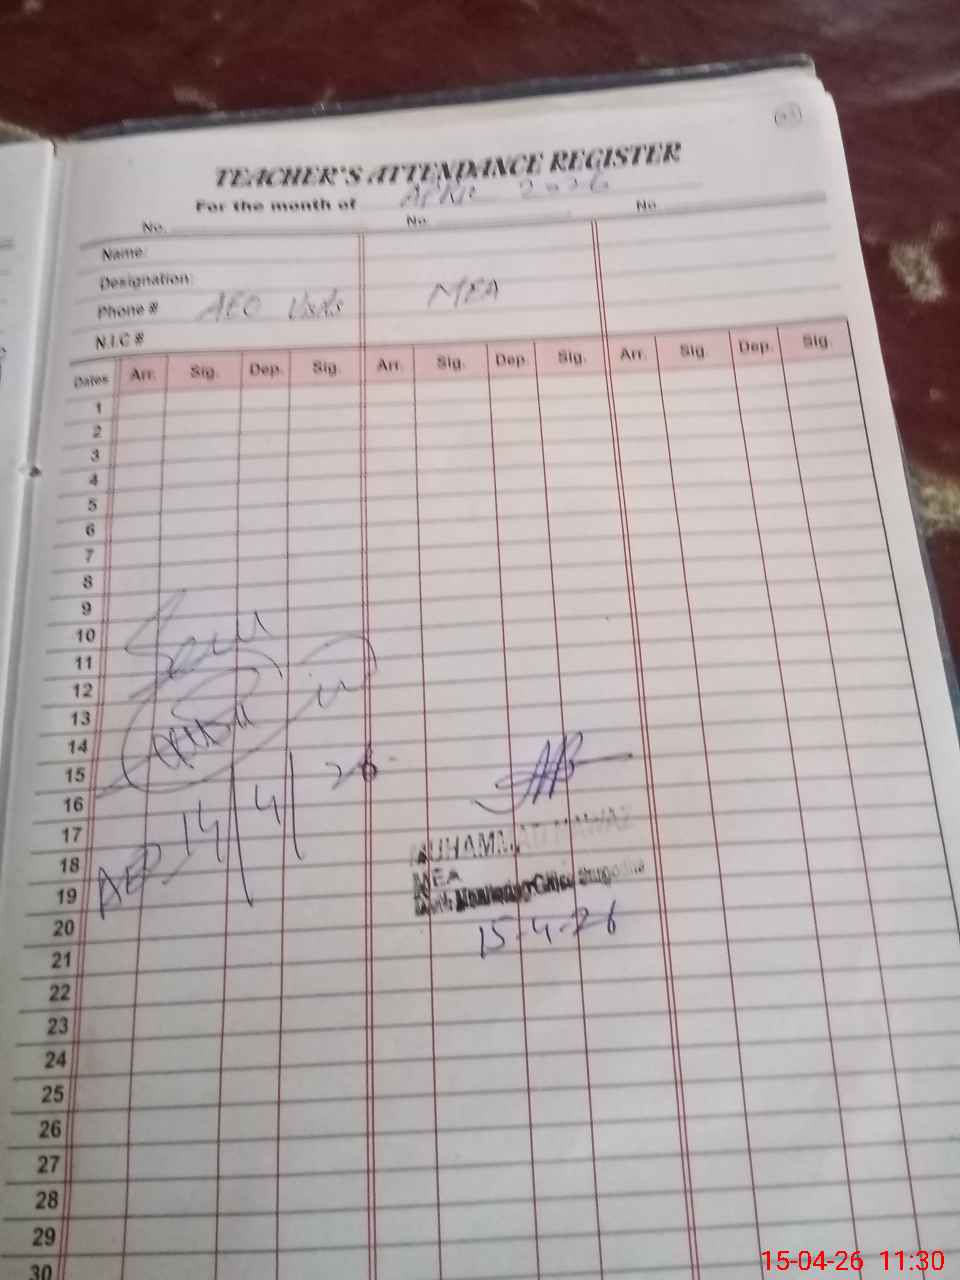 TEACHER'S ATTENDANCE REGISTER
For the month of April 2026
No. No. No.
Name:
Designation:
Phone # AEO Visits MEA
N.I.C #
Dates Arr. Sig. Dep. Sig. Arr. Sig. Dep. Sig. Arr. Sig. Dep. Sig.
1
2
3
4
5
6
7
8
9
10
11
12
13
14
15
16
17
18
19
20
21
22
23
24
25
26
27
28
29
30
AEO 14/4/26
MUHAMMAD NAWAZ
MEA
Monitoring Office Sargodha
15-4-26
15-04-26 11:30